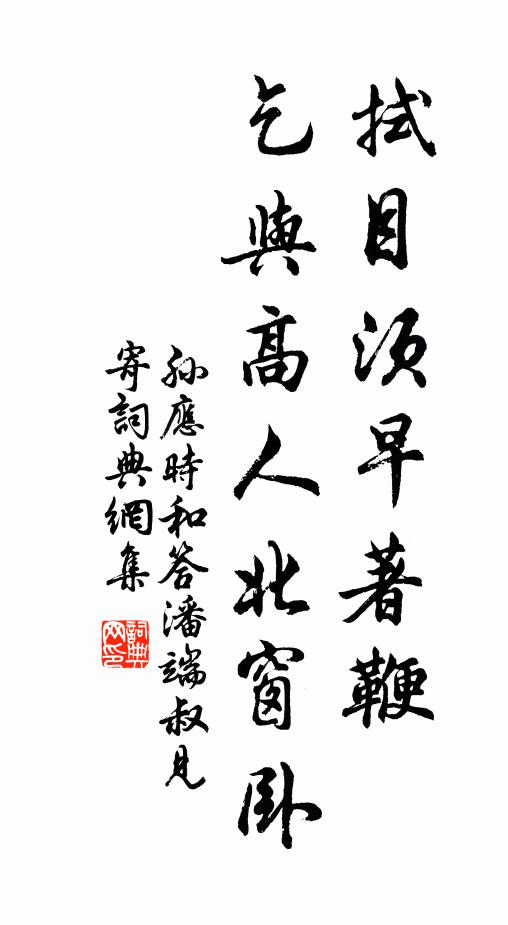 拭目須早著鞭
乞與高人北窗卧
孫應時和答潘端叔見
寄詞典網集
詞典
网印